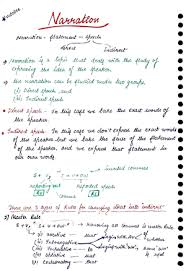 Narration
Narration - Statement - Speech
Direct Indirect
• Narration is a topic that deals with the study of
expressing the idea of the speaker.
• The narration can be studied under two groups.
(i) Direct Speech and
(ii) Indirect Speech
• Direct Speech - In this case we share the exact words of
the speaker.
• Indirect Speech - In this case we don't express the exact words of
the speaker but we take the idea of the statement
of the speaker and we express that statement in
our own words
inverted commas
S + V
reporting verb Reported speech
There are 3 types of Rules for changing direct into indirect
1) Master Rule
S + V S + V
(i) Assertive that
(ii) Interrogative
(iii) Imperative